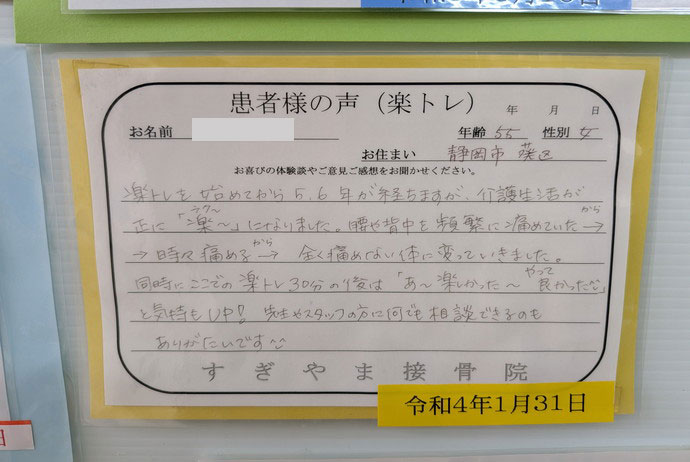 患者様の声（楽トレ）
年　月　日
お名前
年齢 55 性別 女
お住まい 静岡市 葵区
お喜びの体験談やご意見ご感想をお聞かせください。
楽トレを始めてから5.6年が経ちますが、介護生活が
正に「楽〜」になりました。腰や背中を頻繁に痛めていた→
ラク〜
から
→時々痛める→全く痛めない体に変っていきました。
から
同時にここでの楽トレ30分の後は「あ〜楽しかった〜 良かったな」
やって
と気持もUP! 先生やスタッフの方に何でも相談できるのも
ありがたいです
すぎやま接骨院
令和4年1月31日
日